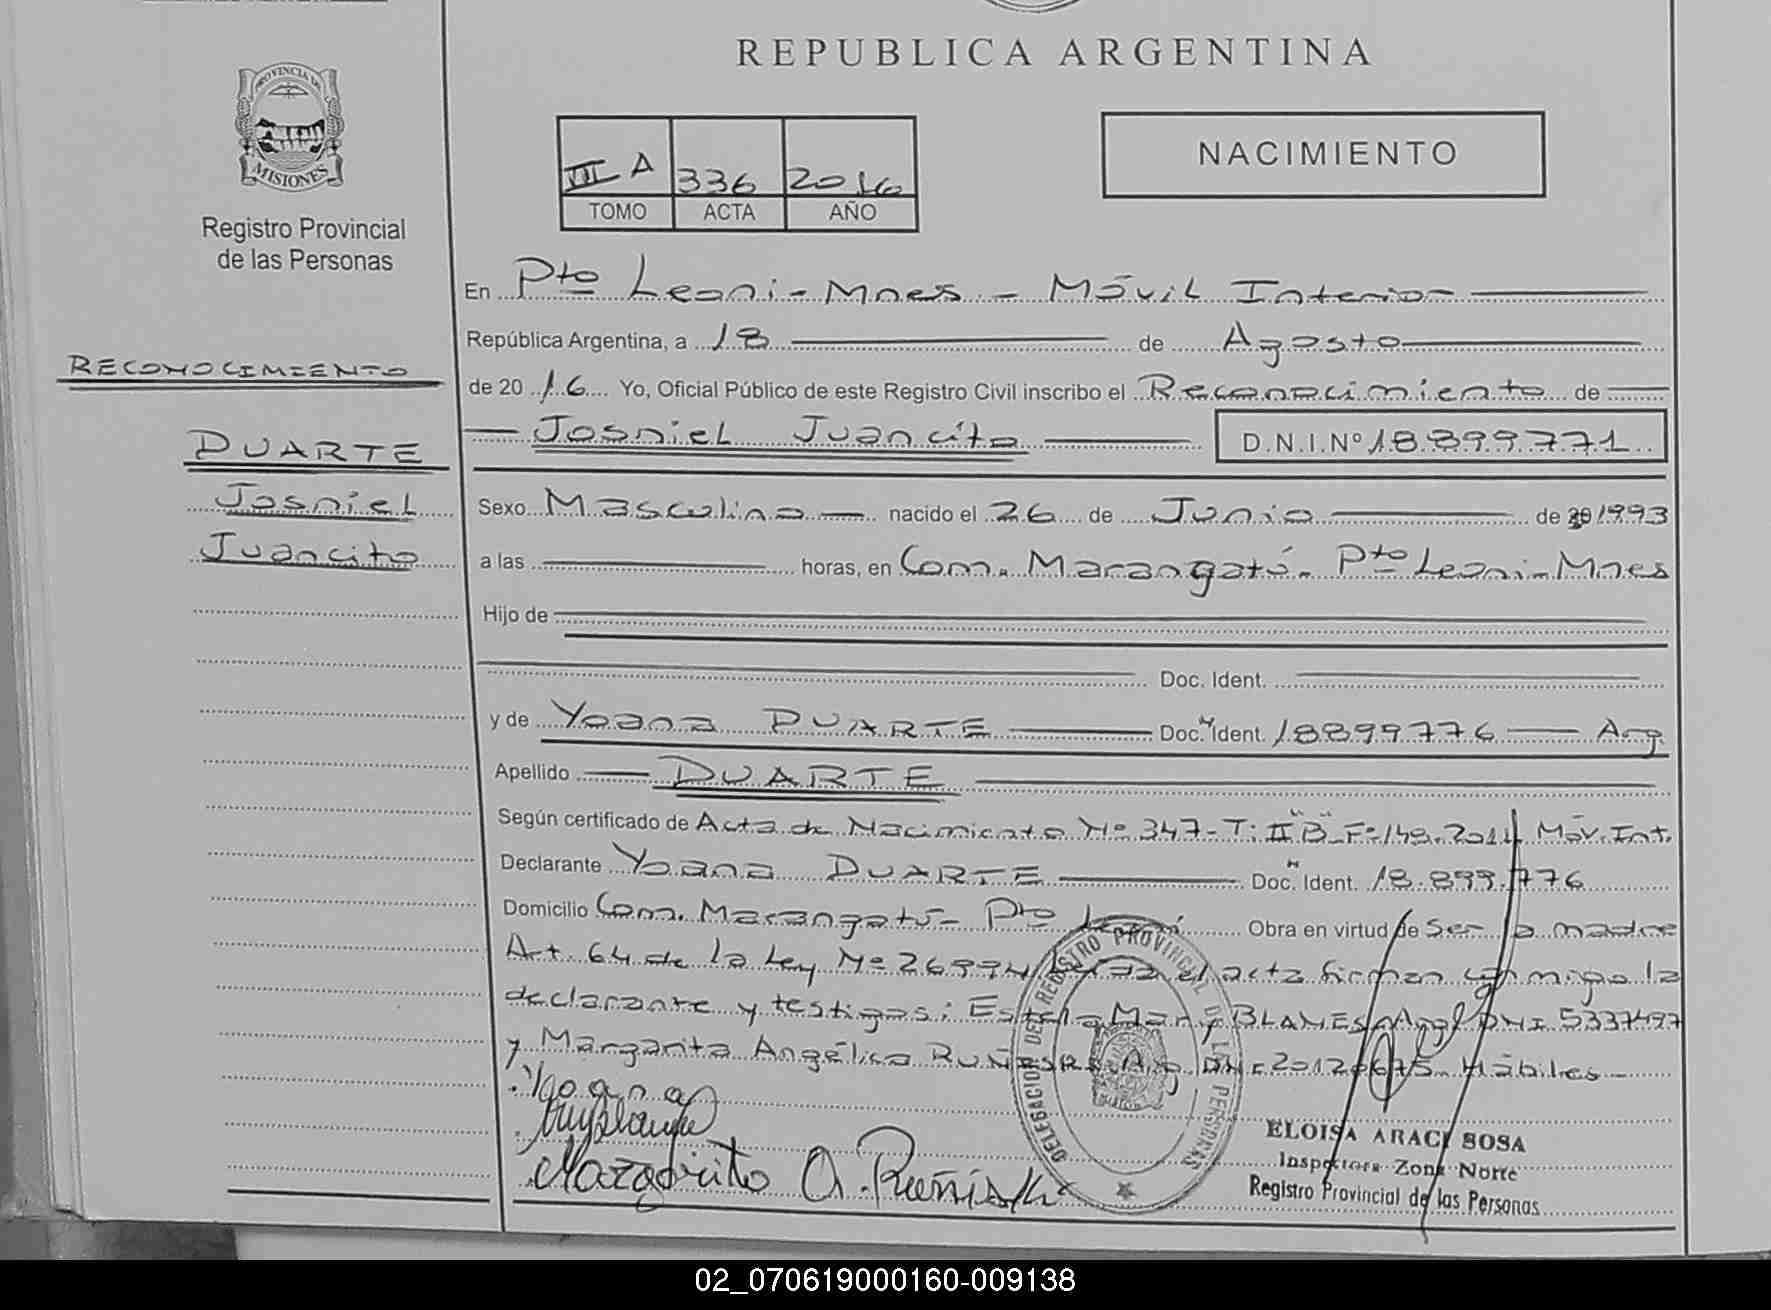 REPUBLICA ARGENTINA
PROVINCIA DE
MISIONES
Registro Provincial
de las Personas
NACIMIENTO
III A 336 2016
TOMO ACTA AÑO
En Pto Leoni - Mnes - Móvil Interior
República Argentina, a 18 de Agosto
RECONOCIMIENTO
de 20 16 Yo, Oficial Público de este Registro Civil inscribo el Reconocimiento de
Josniel Juancito D.N.I.Nº 18.899.771
DUARTE
Josniel
Juancito
Sexo Masculino nacido el 26 de Junio de 1993
a las horas, en Com. Marangatú - Pto Leoni - Mnes
Hijo de
Doc. Ident.
y de Yoana DUARTE Doc. Ident. 18899776 Arg
Apellido DUARTE
Según certificado de Acta de Nacimiento Nº 347 - T: II "B" - Fº 149 - 2014 Móv. Int.
Declarante Yoana DUARTE Doc. Ident. 18.899.776
Domicilio Com. Marangatú - Pto Leoni Obra en virtud de Ser la madre
Art. 64 de la Ley Nº 26994 el acta firman conmigo la
declarante y testigos: Estela Mary BLANES Arg DNI 5337497
y Margarita Angélica Hábiles
Yoana
Margarita A.
DELEGACION DEL REGISTRO PROVINCIAL DE LAS PERSONAS
ELOISA ARACI SOSA
Inspectora Zona Norte
Registro Provincial de las Personas
02_070619000160-009138